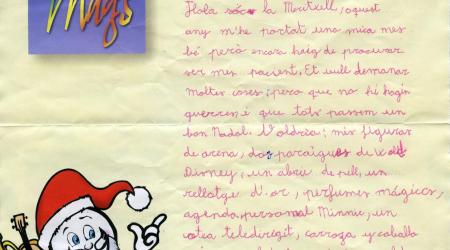 Mags
Hola sóc la Meritxell, aquest
any m'he portat una mica mes
bé però encara haig de procurar
ser mes pacient. Et vull demanar
moltes coses; pero que no hi hagin
guerres; i que tots passem un
bon Nadal. Voldria: mis figuras
de arena, dos paraigües de Walt
Disney, un abric de pell, un
rellotge d'or, perfumes mágiccs,
agenda personal Minnie, un
cotxe teledirigit, carroça y caballo